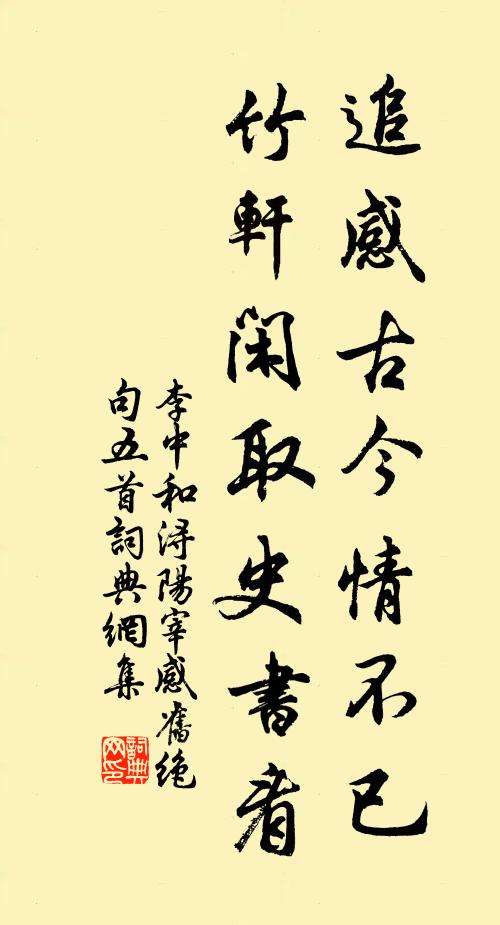 追感古今情不已
竹軒閑取史書看
李中和潯陽宰感舊絶
句五首詞典網集
詞典
网印